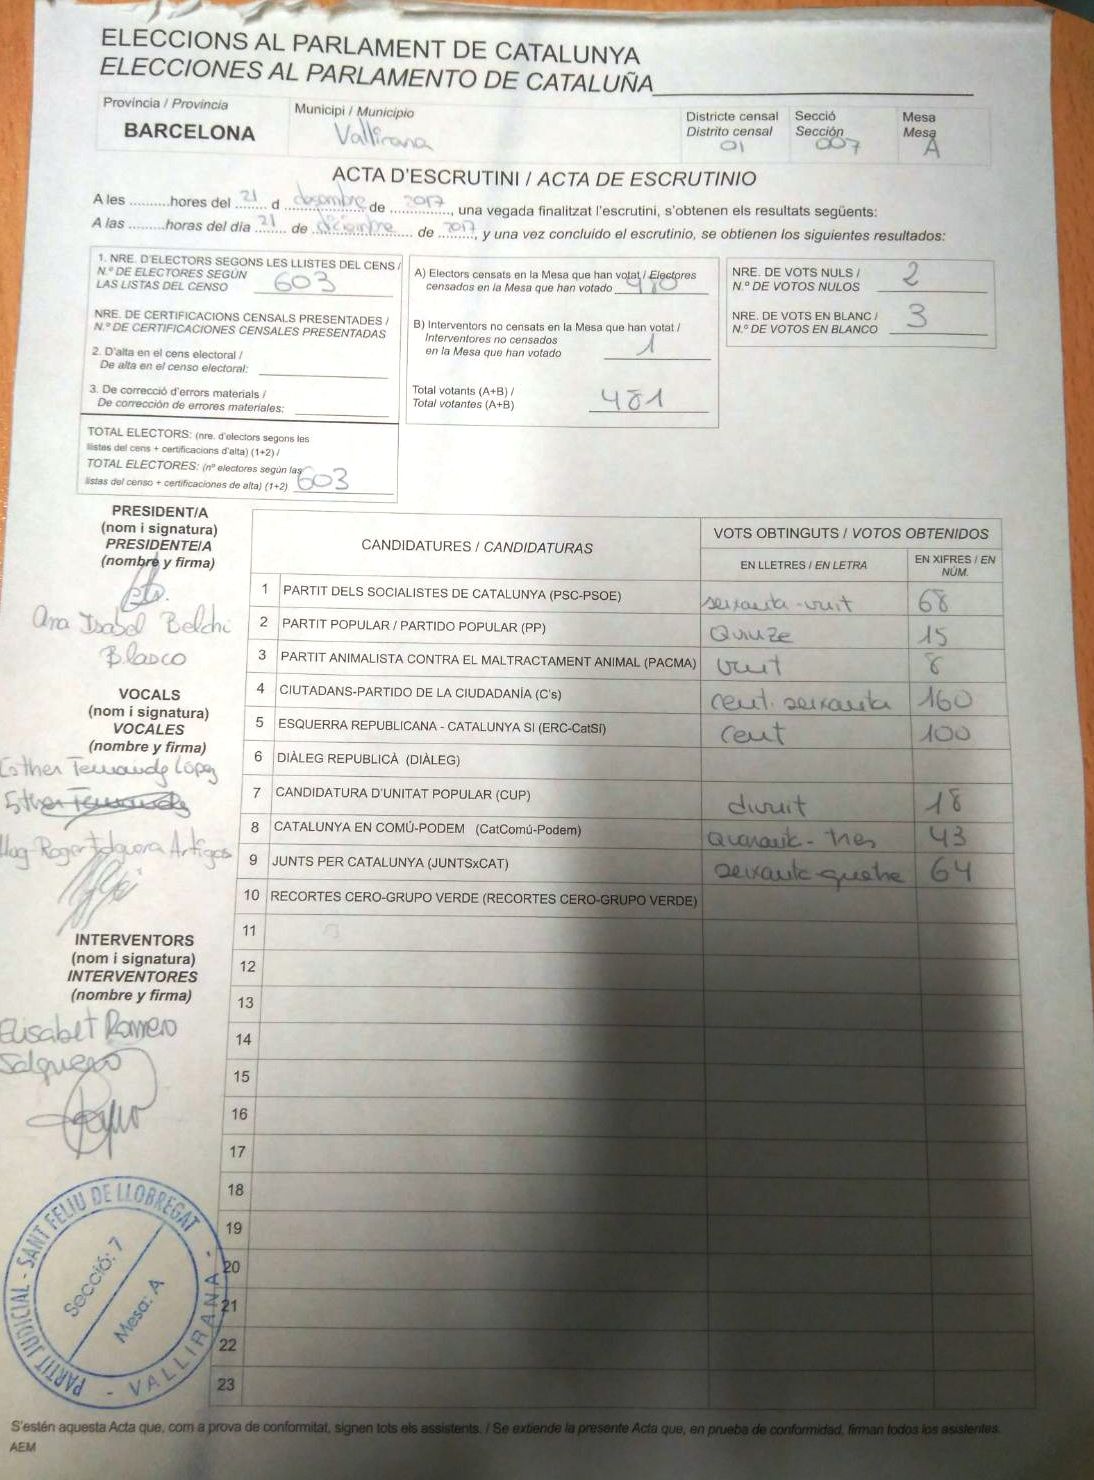 ELECCIONS AL PARLAMENT DE CATALUNYA
ELECCIONES AL PARLAMENTO DE CATALUÑA
Província / Provincia
BARCELONA
Municipi / Municipio
Vallirana
Districte censal
Distrito censal
01
Secció
Sección
007
Mesa
Mesa
A
ACTA D'ESCRUTINI / ACTA DE ESCRUTINIO
A les ..........hores del 21 d desembre de 2017, una vegada finalitzat l'escrutini, s'obtenen els resultats següents:
A las ..........horas del día 21 de diciembre de 2017, y una vez concluido el escrutinio, se obtienen los siguientes resultados:
1. NRE. D'ELECTORS SEGONS LES LLISTES DEL CENS /
N.º DE ELECTORES SEGÚN
LAS LISTAS DEL CENSO 603
NRE. DE CERTIFICACIONS CENSALS PRESENTADES /
N.º DE CERTIFICACIONES CENSALES PRESENTADAS
2. D'alta en el cens electoral /
De alta en el censo electoral:
3. De correcció d'errors materials /
De corrección de errores materiales:
TOTAL ELECTORS: (nre. d'electors segons les
llistes del cens + certificacions d'alta) (1+2) /
TOTAL ELECTORES: (nº electores según las
listas del censo + certificaciones de alta) (1+2) 603
A) Electors censats en la Mesa que han votat / Electores
censados en la Mesa que han votado 480
B) Interventors no censats en la Mesa que han votat /
Interventores no censados
en la Mesa que han votado 1
Total votants (A+B) /
Total votantes (A+B) 481
NRE. DE VOTS NULS /
N.º DE VOTOS NULOS 2
NRE. DE VOTS EN BLANC /
N.º DE VOTOS EN BLANCO 3
PRESIDENT/A
(nom i signatura)
PRESIDENTE/A
(nombre y firma)
Ana Isabel Belchi
Blasco
VOCALS
(nom i signatura)
VOCALES
(nombre y firma)
Esther López
Esther
Roger Artigas
INTERVENTORS
(nom i signatura)
INTERVENTORES
(nombre y firma)
Elisabet Romero
Salguero
CANDIDATURES / CANDIDATURAS
VOTS OBTINGUTS / VOTOS OBTENIDOS
EN LLETRES / EN LETRA
EN XIFRES / EN
NÚM.
1 PARTIT DELS SOCIALISTES DE CATALUNYA (PSC-PSOE) seixanta-vuit 68
2 PARTIT POPULAR / PARTIDO POPULAR (PP) Quinze 15
3 PARTIT ANIMALISTA CONTRA EL MALTRACTAMENT ANIMAL (PACMA) vuit 8
4 CIUTADANS-PARTIDO DE LA CIUDADANÍA (C's) cent. seixanta 160
5 ESQUERRA REPUBLICANA - CATALUNYA SI (ERC-CatSí) cent 100
6 DIÀLEG REPUBLICÀ (DIÀLEG)
7 CANDIDATURA D'UNITAT POPULAR (CUP) divuit 18
8 CATALUNYA EN COMÚ-PODEM (CatComú-Podem) Quaranta-tres 43
9 JUNTS PER CATALUNYA (JUNTSxCAT) seixanta-quatre 64
10 RECORTES CERO-GRUPO VERDE (RECORTES CERO-GRUPO VERDE)
11
12
13
14
15
16
17
18
19
20
21
22
23
PARTIT JUDICIAL - SANT FELIU DE LLOBREGAT
- VALLIRANA -
Secció: 7
Mesa: A
S'estén aquesta Acta que, com a prova de conformitat, signen tots els assistents. / Se extiende la presente Acta que, en prueba de conformidad, firman todos los asistentes.
AEM